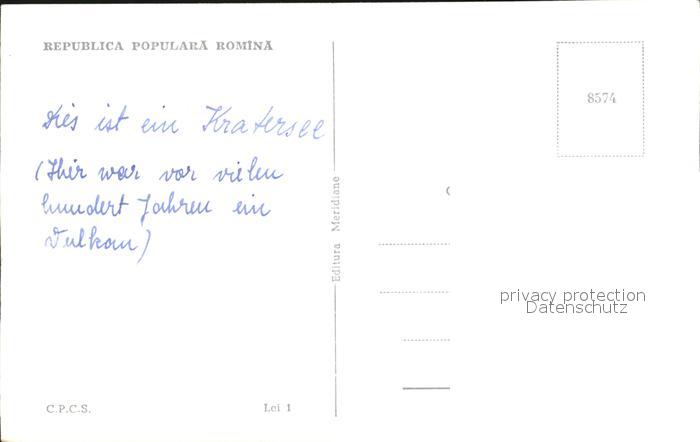 REPUBLICA POPULARĂ ROMÎNĂ
8574
Dies ist ein Kratersee
(Hier war vor vielen
hundert Jahren ein
Vulkan)
Editura Meridiane
privacy protection
Datenschutz
C.P.C.S.
Lei 1